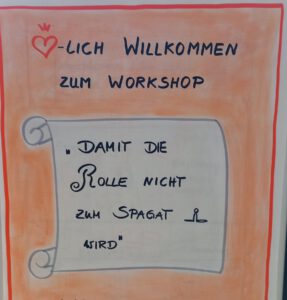 -LICH WILLKOMMEN
ZUM WORKSHOP
„DAMIT DIE
ROLLE NICHT
ZUM SPAGAT
WIRD"